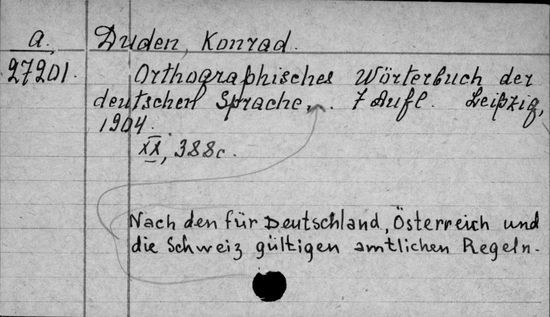 a., Duden, Konrad.
27201. Orthographisches Wörterbuch der
deutschen Sprache,. 7 Aufl. Leipzig,
1904.
XX, 388c.
Nach den für Deutschland, Österreich und
die Schweiz gültigen amtlichen Regeln.